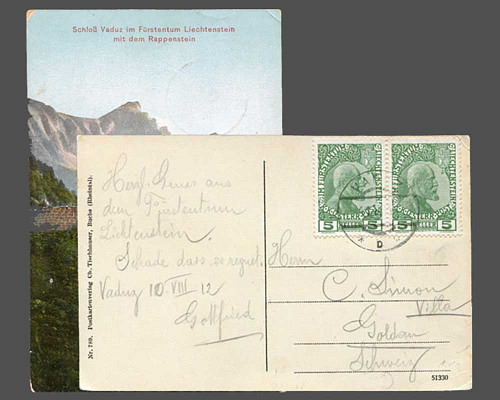 Schloß Vaduz im Fürstentum Liechtenstein
mit dem Rappenstein
Nr. 789. Postkartenverlag Ch. Tischhauser, Buchs (Rheintal).
Herzl. Gruss aus
dem Fürstentum
Lichtenstein.
Schade dass es regnet.
Vaduz 10 VIII 12
Gottfried
5 5
5 5
D
Herrn
C. Simon
Villa
Goldau
Schweiz
51330